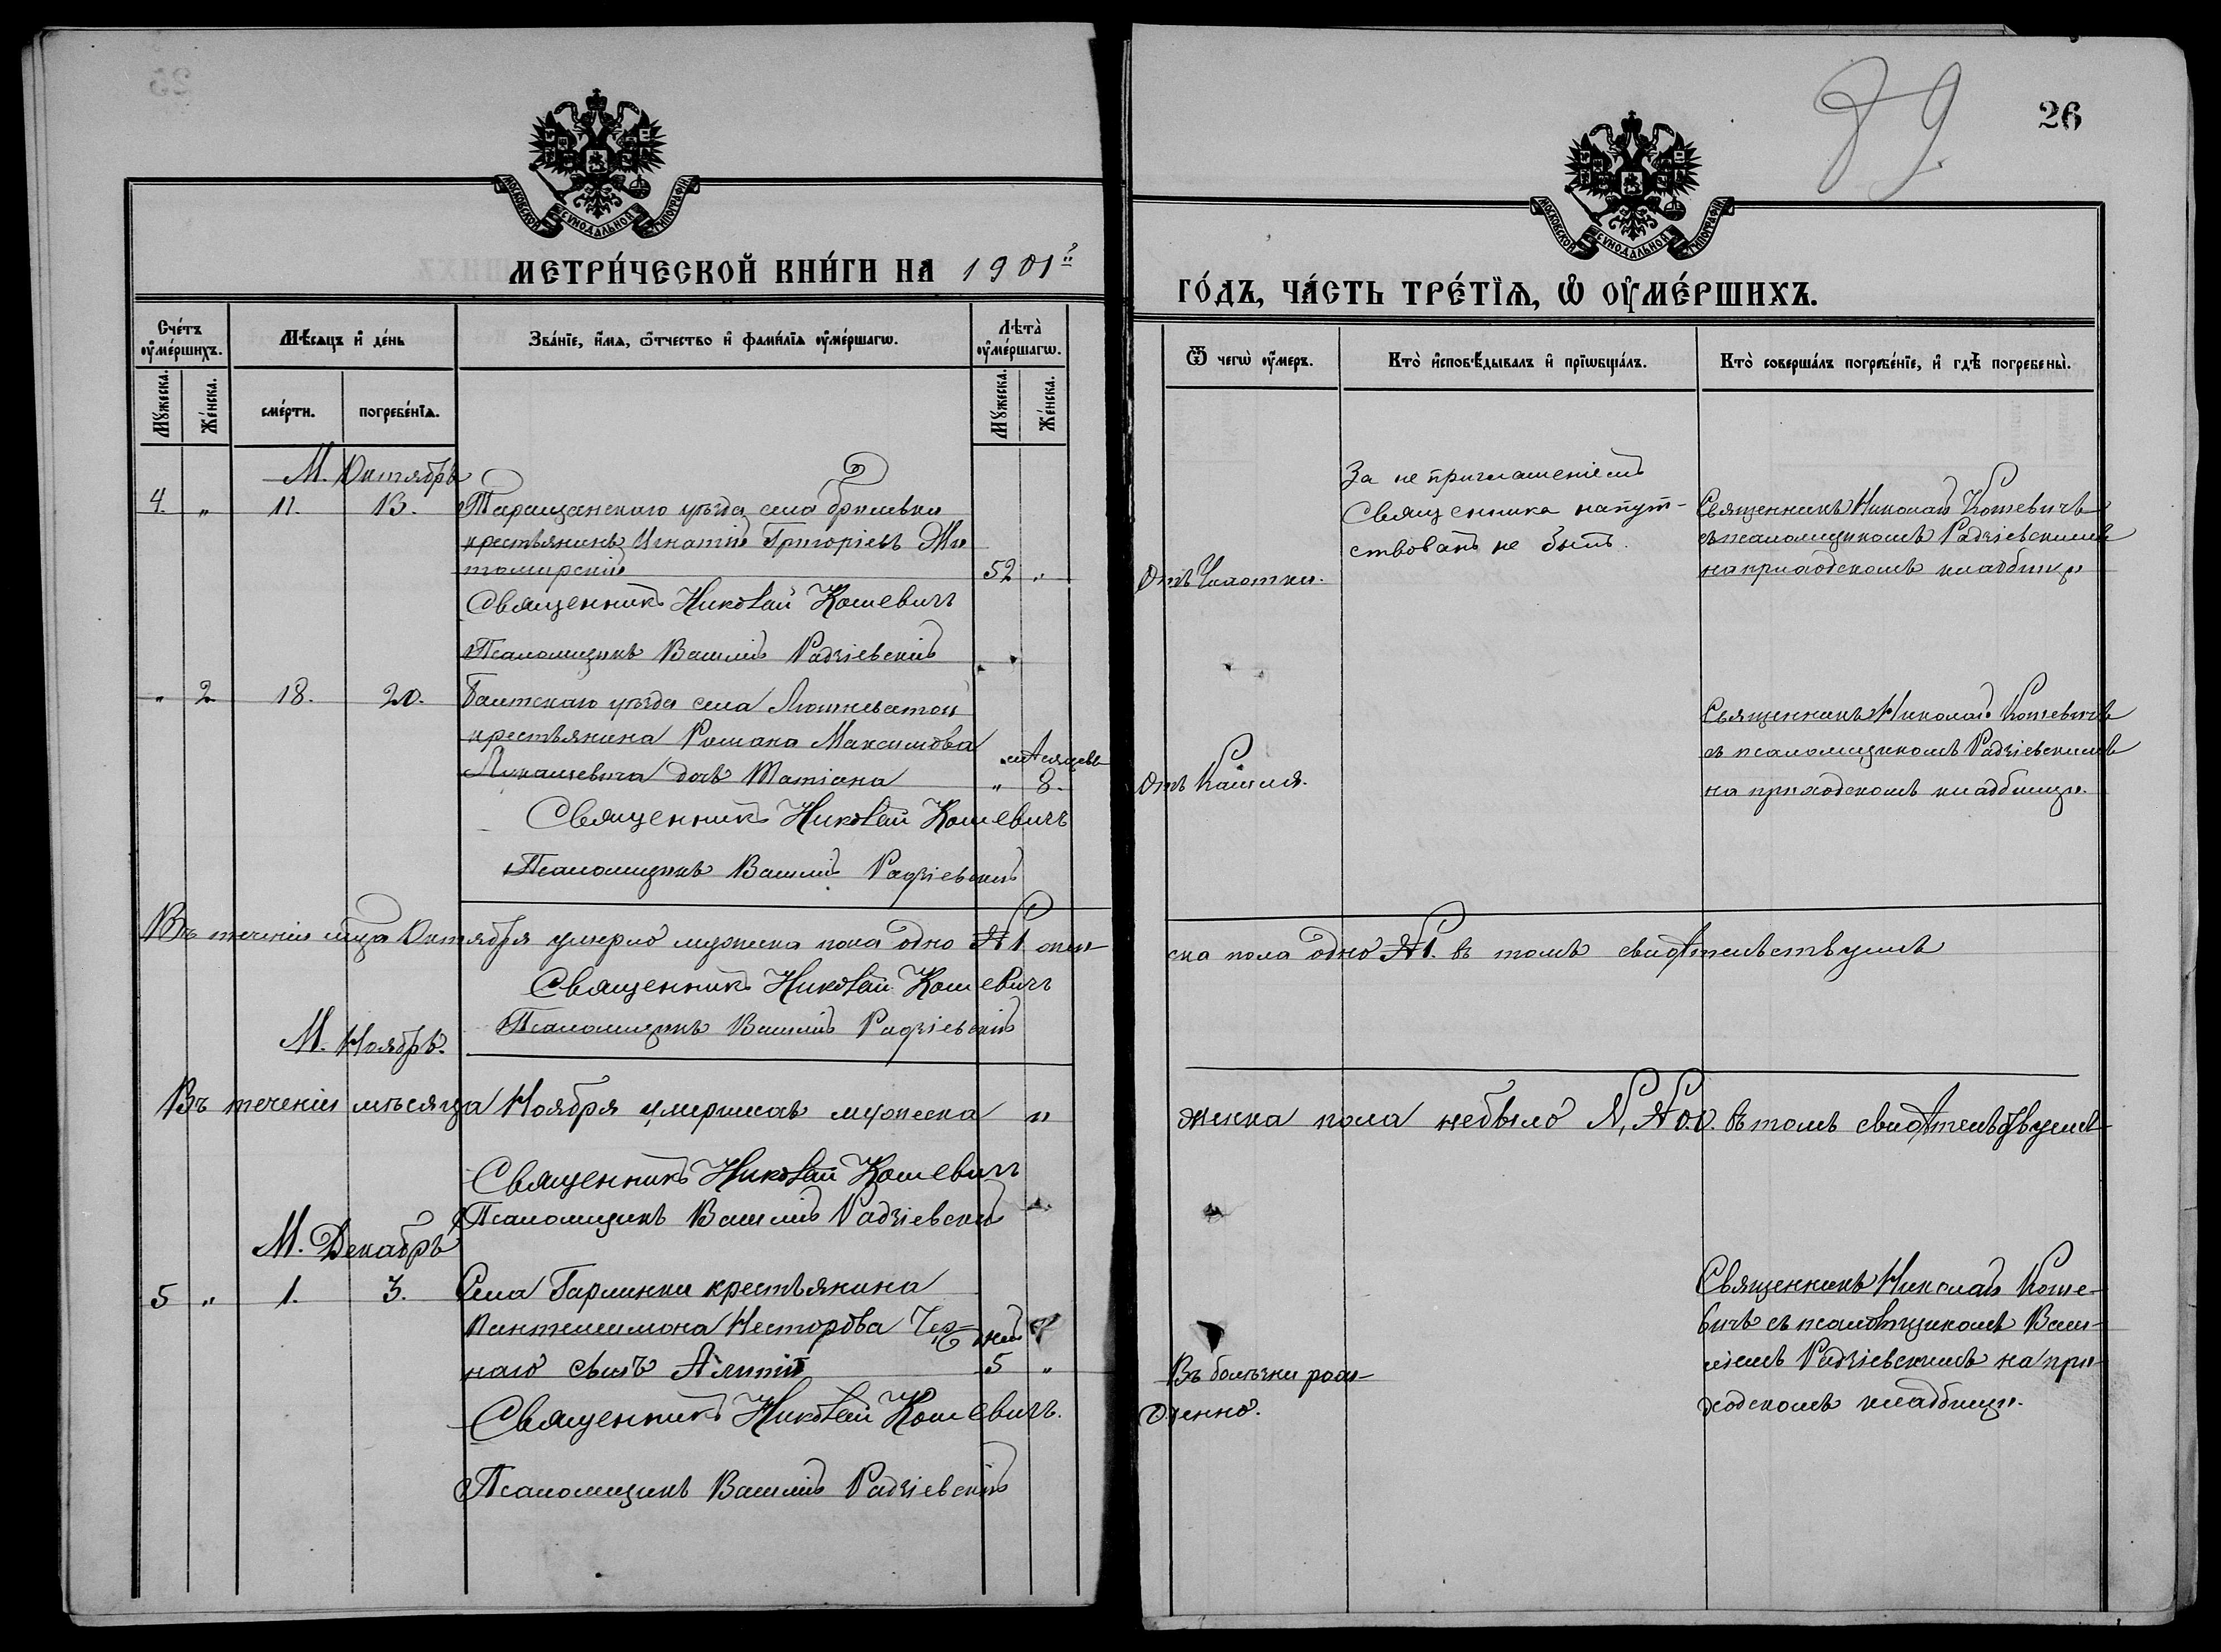 26
89.
МОСКОВСКОЙ СѴНОДАЛЬНОЙ ТИПОГРАФІИ
МЕТРИ́ЧЕСКОЙ КНИ́ГИ НА 1901й
МОСКОВСКОЙ СѴНОДАЛЬНОЙ ТИПОГРАФІИ
ГО́ДЪ, ЧА́СТЬ ТРЕ́ТЇѦ, Ѡ҆ ОУ҆МЕ́РШИХЪ.
Сче́тъ оу҆ме́ршихъ.
Мꙋ́жеска.
Же́нска.
Мѣ́сѧцъ и҆ де́нь
сме́рти.
погребе́нїѧ.
Зва́нїе, и҆́мѧ, ѻ҆́тчество и҆ фами́лїѧ оу҆ме́ршагѡ.
Лѣта̀ оу҆ме́ршагѡ.
Мꙋ́жеска.
Же́нска.
Ѿ чегѡ̀ оу҆́меръ.
Кто̀ и҆сповѣ́дывалъ и҆ прїѡбща́лъ.
Кто̀ соверша́лъ погребе́нїе, и҆ гдѣ̀ погребены̀.
М. Октябрь
4. „ 11. 13. Таращанскаго уѣзда села
крестьянинъ Игнатій Григоріевъ Жи
томирскій 52 „
Отъ Чахотки.
За не приглашеніемъ
Священника напут-
ствованъ не былъ.
Священникъ Николай Кошевичъ
съ псаломщикомъ Радзіевскимъ
на приходскомъ кладбищѣ
Священникъ Николай Кошевичъ
Псаломщикъ Василій Радзіевскій
„ 2 18. 20. Балтскаго уѣзда села Люшневатой
крестьянина Романа Максимова
Лукашевича дочь Татіана мѣсяцевъ „ 8.
Отъ Кашля.
Священникъ Николай Кошевичъ
съ псаломщикомъ Радзіевскимъ
на приходскомъ кладбищѣ.
Священникъ Николай Кошевичъ
Псаломщикъ Василій Радзіевскій
Въ теченіи мѣсяца Октября умерло мужеска пола одно № 1 жен-
ска пола одно № 1. въ томъ свидѣтельствуемъ
Священникъ Николай Кошевичъ
Псаломщикъ Василій Радзіевскій
М. Ноябрь.
Въ теченіи мѣсяца Ноября умершихъ мужеска и
женска пола небыло №, № 0.0. въ томъ свидѣтельствуемъ
Священникъ Николай Кошевичъ
Псаломщикъ Василій Радзіевскій
М. Декабрь
5 „ 1. 3. Села Гарлинки крестьянина
Пантелеимона Несторова Чер-
наго сынъ дней 5 „
Въ болѣзни рож-
денно.
Священникъ Николай Коше-
вичъ съ псаломщикомъ Васи-
ліемъ Радзіевскимъ на при-
ходскомъ кладбищѣ.
Священникъ Николай Кошевичъ.
Псаломщикъ Василій Радзіевскій